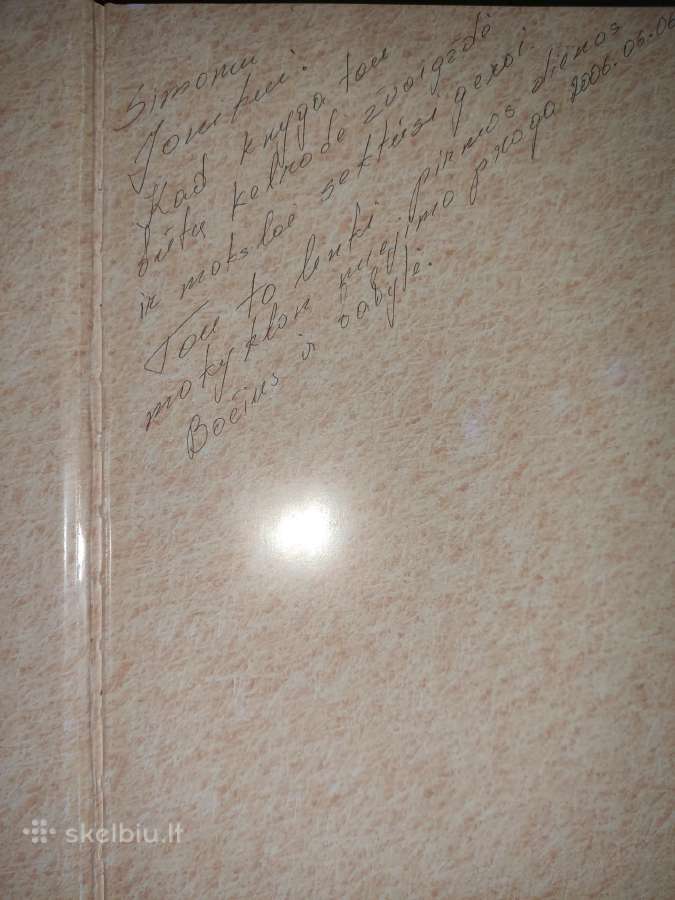 Simonu
Jonitui.
Kad knyga tau
būtų kelrodė žvaigždė
ir mokslai sektųsi gerai.
Tau to linki pirmos dienos
mokyklon nuejimo proga 2006.06.06
Bočius ir babytė.
skelbiu.lt